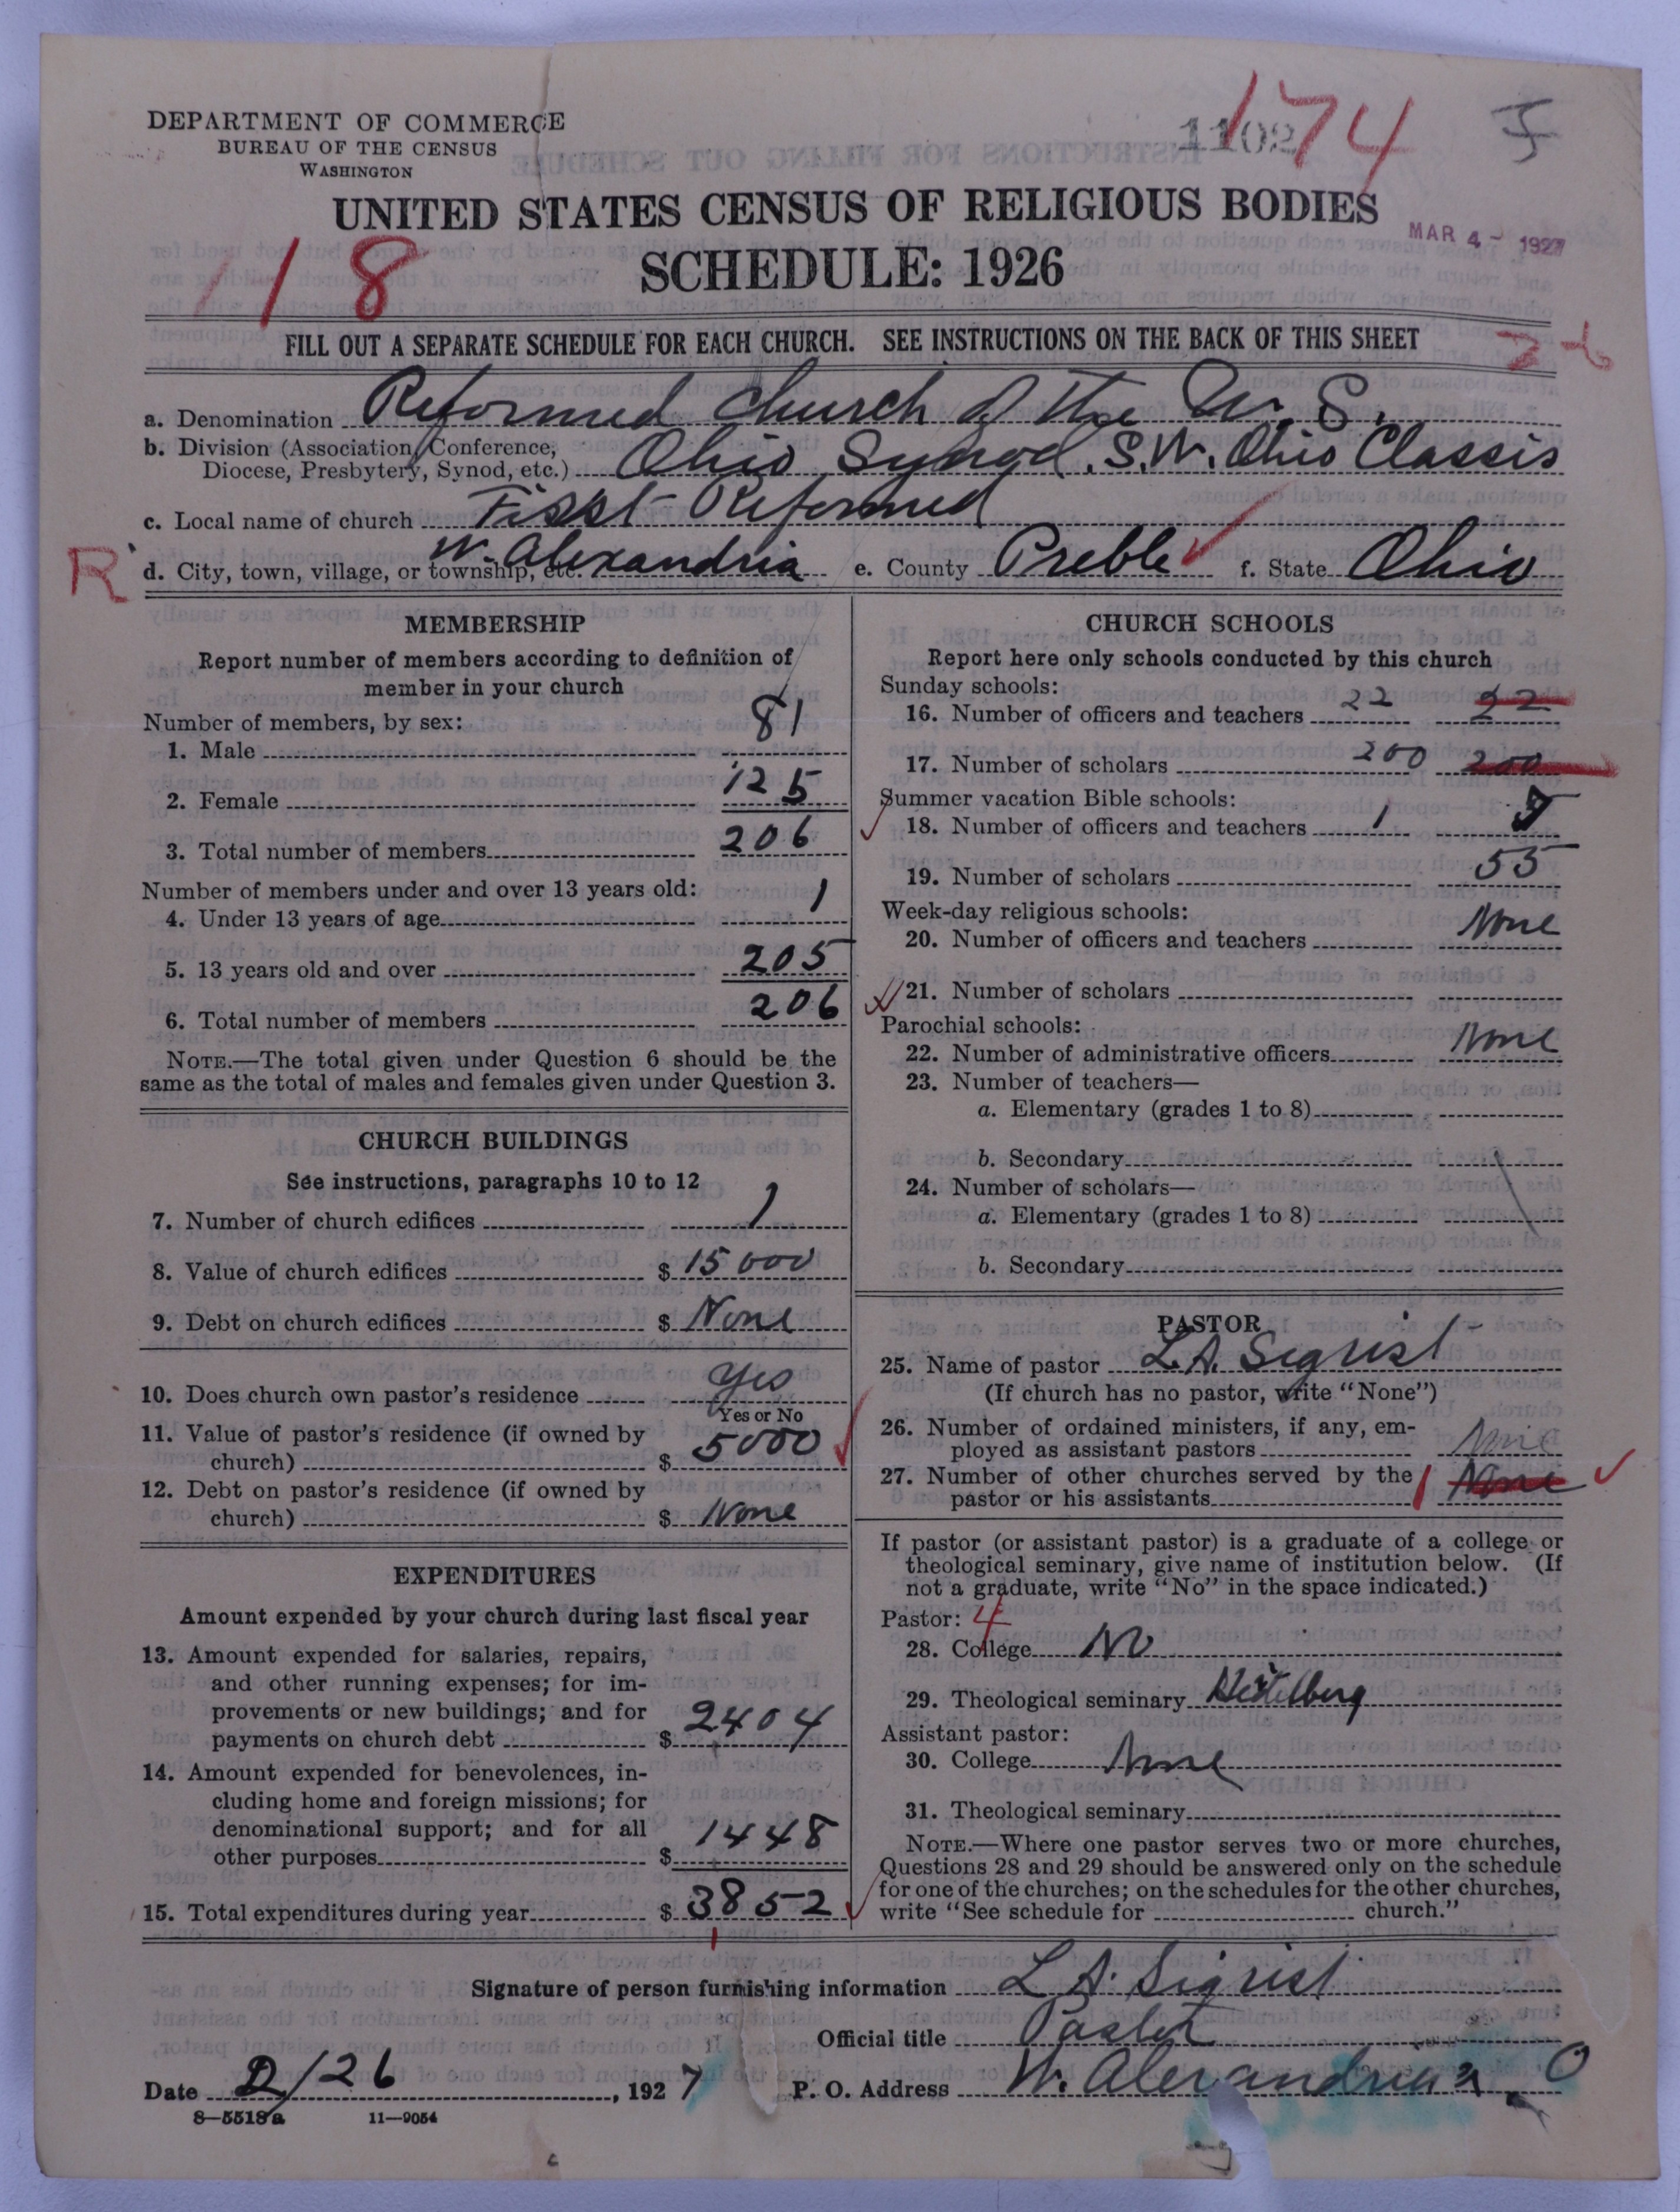 DEPARTMENT OF COMMERCE
BUREAU OF THE CENSUS
WASHINGTON
1102
174
UNITED STATES CENSUS OF RELIGIOUS BODIES
MAR 4 - 1927
118
SCHEDULE: 1926
FILL OUT A SEPARATE SCHEDULE FOR EACH CHURCH. SEE INSTRUCTIONS ON THE BACK OF THIS SHEET
a. Denomination Reformed Church of the U. S.
b. Division (Association, Conference,
Diocese, Presbytery, Synod, etc.) Ohio Synod. S.W. Ohio Classis
c. Local name of church First Reformed
R
d. City, town, village, or township, etc. W. Alexandria e. County Preble f. State Ohio
MEMBERSHIP
Report number of members according to definition of
member in your church
Number of members, by sex:
1. Male 81
2. Female 125
3. Total number of members 206
Number of members under and over 13 years old:
4. Under 13 years of age 1
5. 13 years old and over 205
6. Total number of members 206
NOTE.—The total given under Question 6 should be the
same as the total of males and females given under Question 3.
CHURCH BUILDINGS
See instructions, paragraphs 10 to 12
7. Number of church edifices 1
8. Value of church edifices $ 15000
9. Debt on church edifices $ None
10. Does church own pastor's residence Yes
Yes or No
11. Value of pastor's residence (if owned by
church) $ 5000
12. Debt on pastor's residence (if owned by
church) $ None
EXPENDITURES
Amount expended by your church during last fiscal year
13. Amount expended for salaries, repairs,
and other running expenses; for im-
provements or new buildings; and for
payments on church debt $ 2404
14. Amount expended for benevolences, in-
cluding home and foreign missions; for
denominational support; and for all
other purposes $ 1448
15. Total expenditures during year $ 3852
CHURCH SCHOOLS
Report here only schools conducted by this church
Sunday schools:
16. Number of officers and teachers 22 22
17. Number of scholars 200 200
Summer vacation Bible schools:
18. Number of officers and teachers 1
19. Number of scholars 55
Week-day religious schools:
20. Number of officers and teachers None
21. Number of scholars
Parochial schools:
22. Number of administrative officers None
23. Number of teachers—
a. Elementary (grades 1 to 8)
b. Secondary
24. Number of scholars—
a. Elementary (grades 1 to 8)
b. Secondary
PASTOR
25. Name of pastor L. A. Sigrist
(If church has no pastor, write "None")
26. Number of ordained ministers, if any, em-
ployed as assistant pastors None
27. Number of other churches served by the
pastor or his assistants 1 None
If pastor (or assistant pastor) is a graduate of a college or
theological seminary, give name of institution below. (If
not a graduate, write "No" in the space indicated.)
Pastor: 4
28. College No
29. Theological seminary Heidelberg
Assistant pastor:
30. College None
31. Theological seminary
NOTE.—Where one pastor serves two or more churches,
Questions 28 and 29 should be answered only on the schedule
for one of the churches; on the schedules for the other churches,
write "See schedule for church."
Signature of person furnishing information L. A. Sigrist
Official title Pastor
Date 2/26, 1927 P. O. Address W. Alexandria, O
8—5518a 11—9054